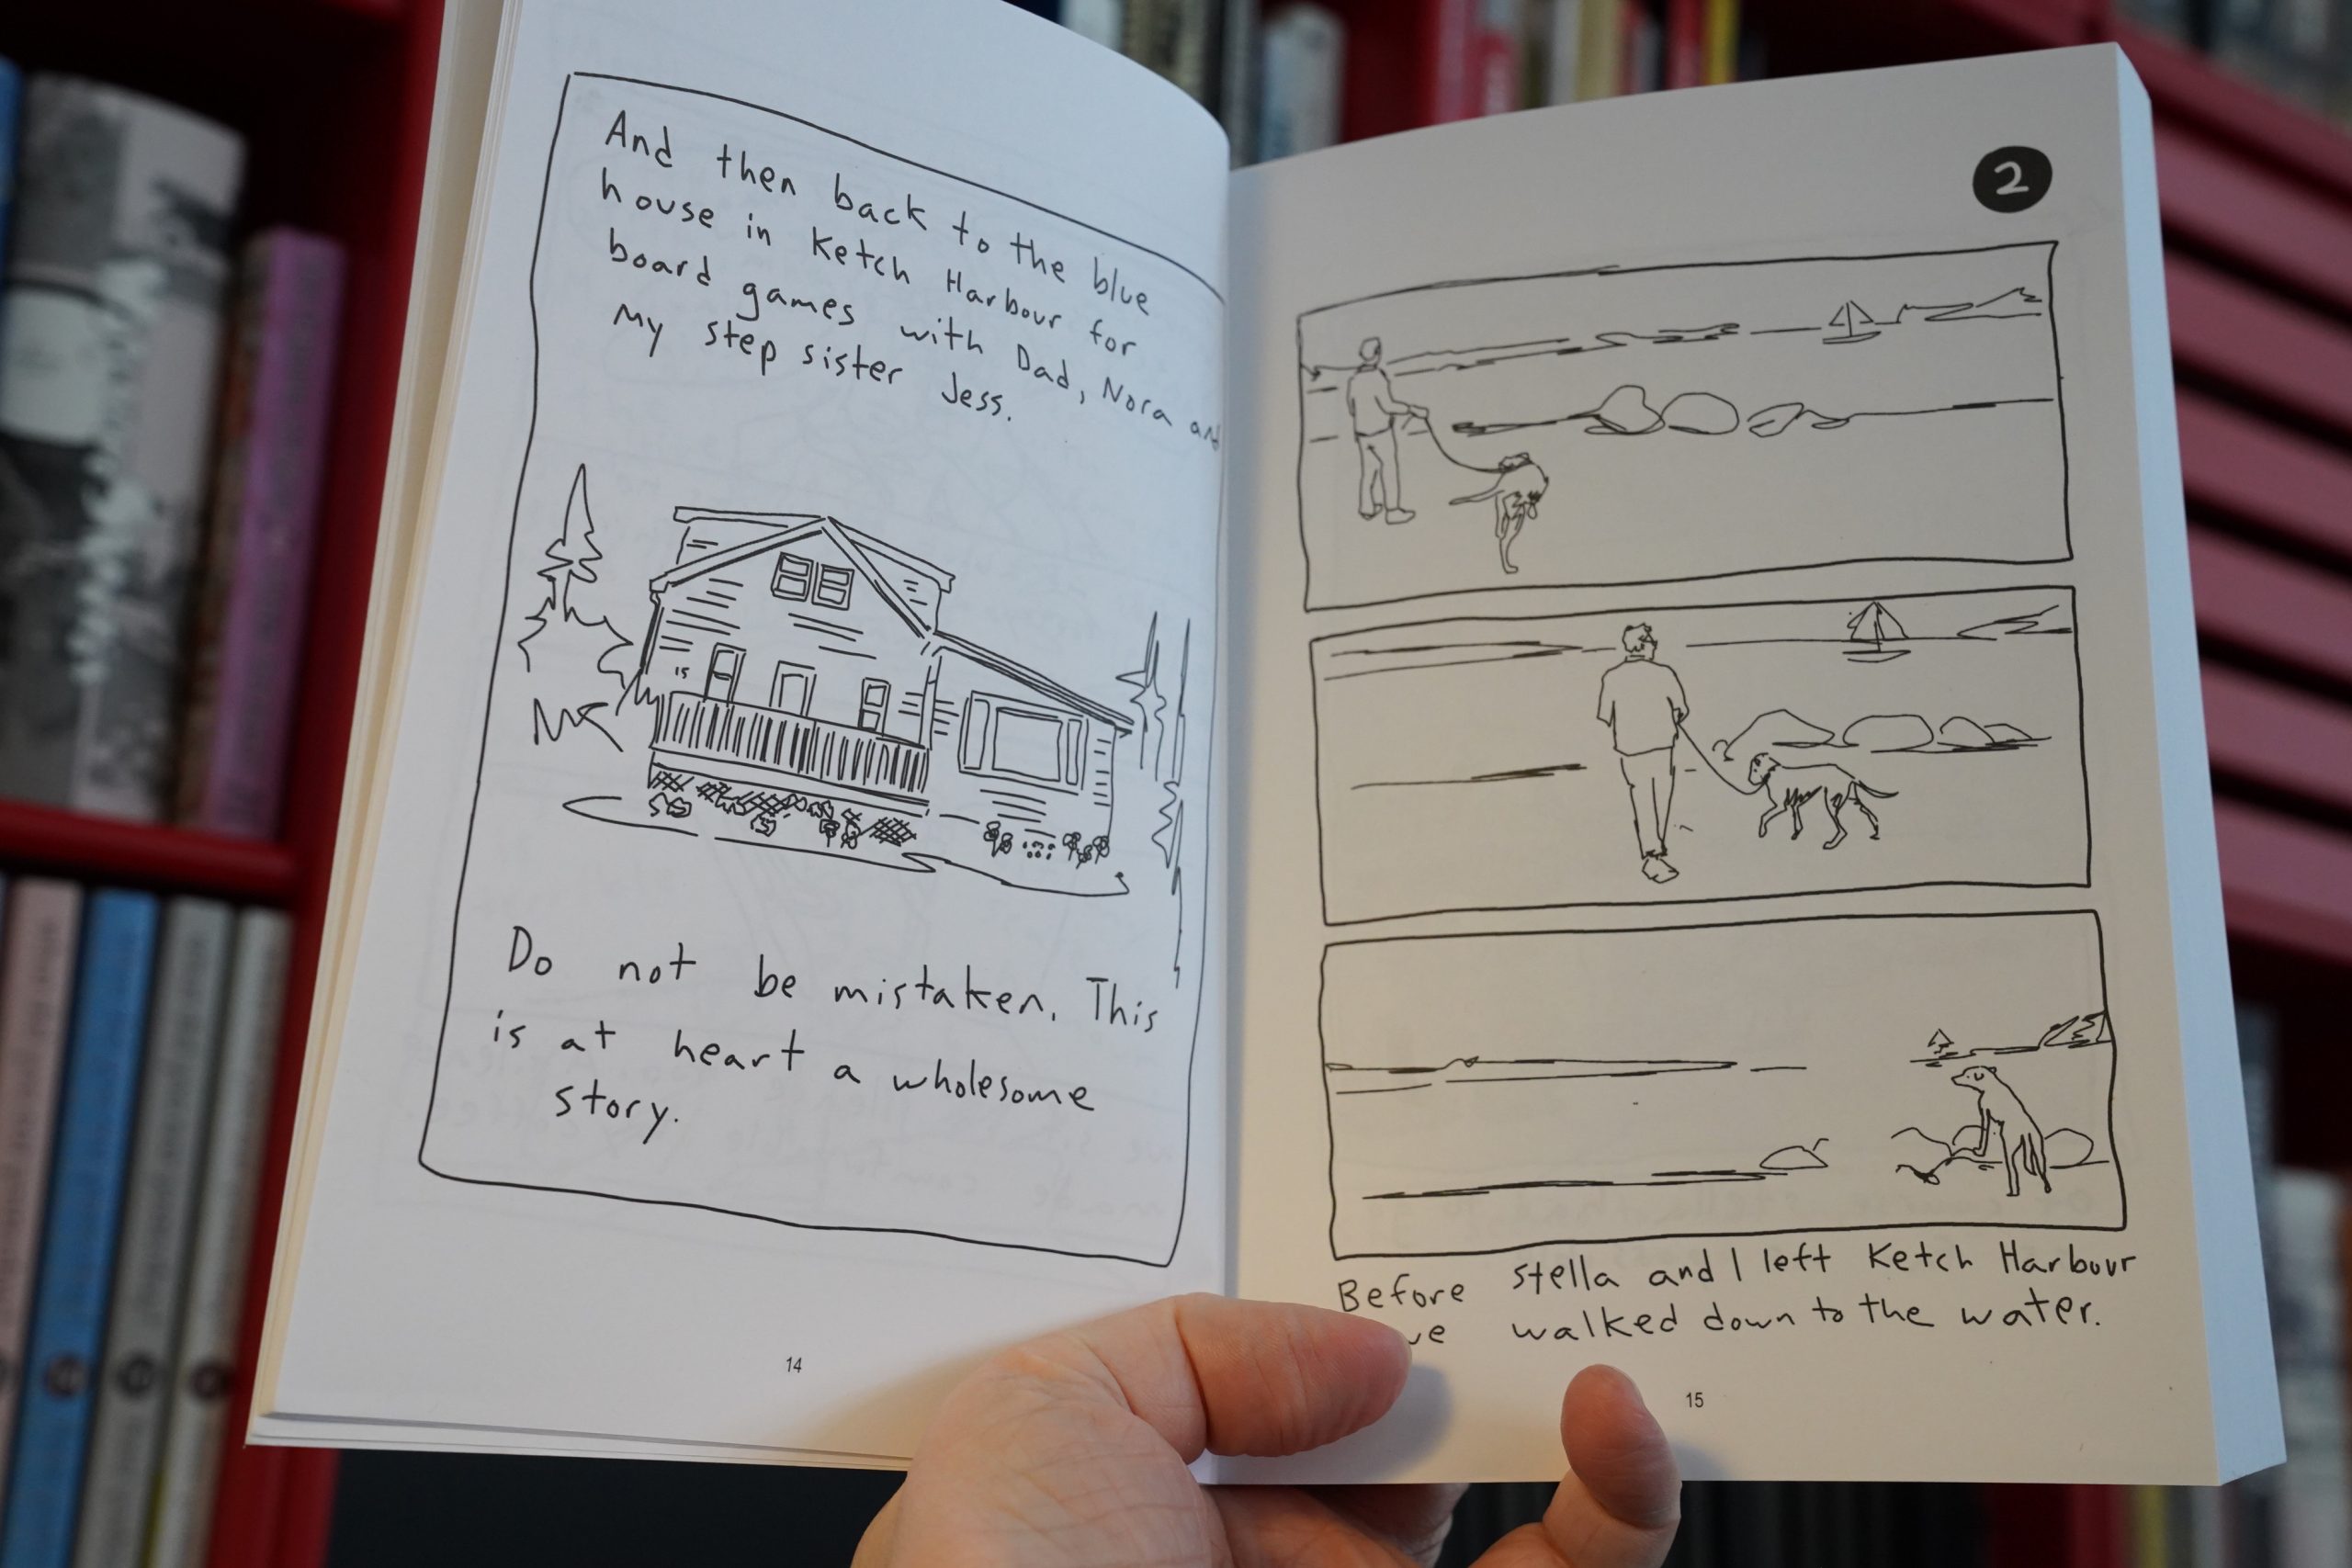 And then back to the blue
house in Ketch Harbour for
board games with Dad, Nora and
my step sister Jess.
15
Do not be mistaken. This
is at heart a wholesome
story.
14
2
Before Stella and I left Ketch Harbour
we walked down to the water.
15